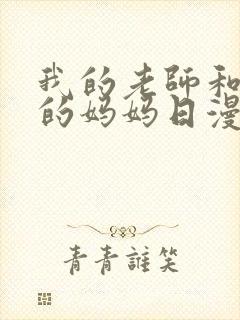 我的老師和
的妈妈日漫
青青誰笑